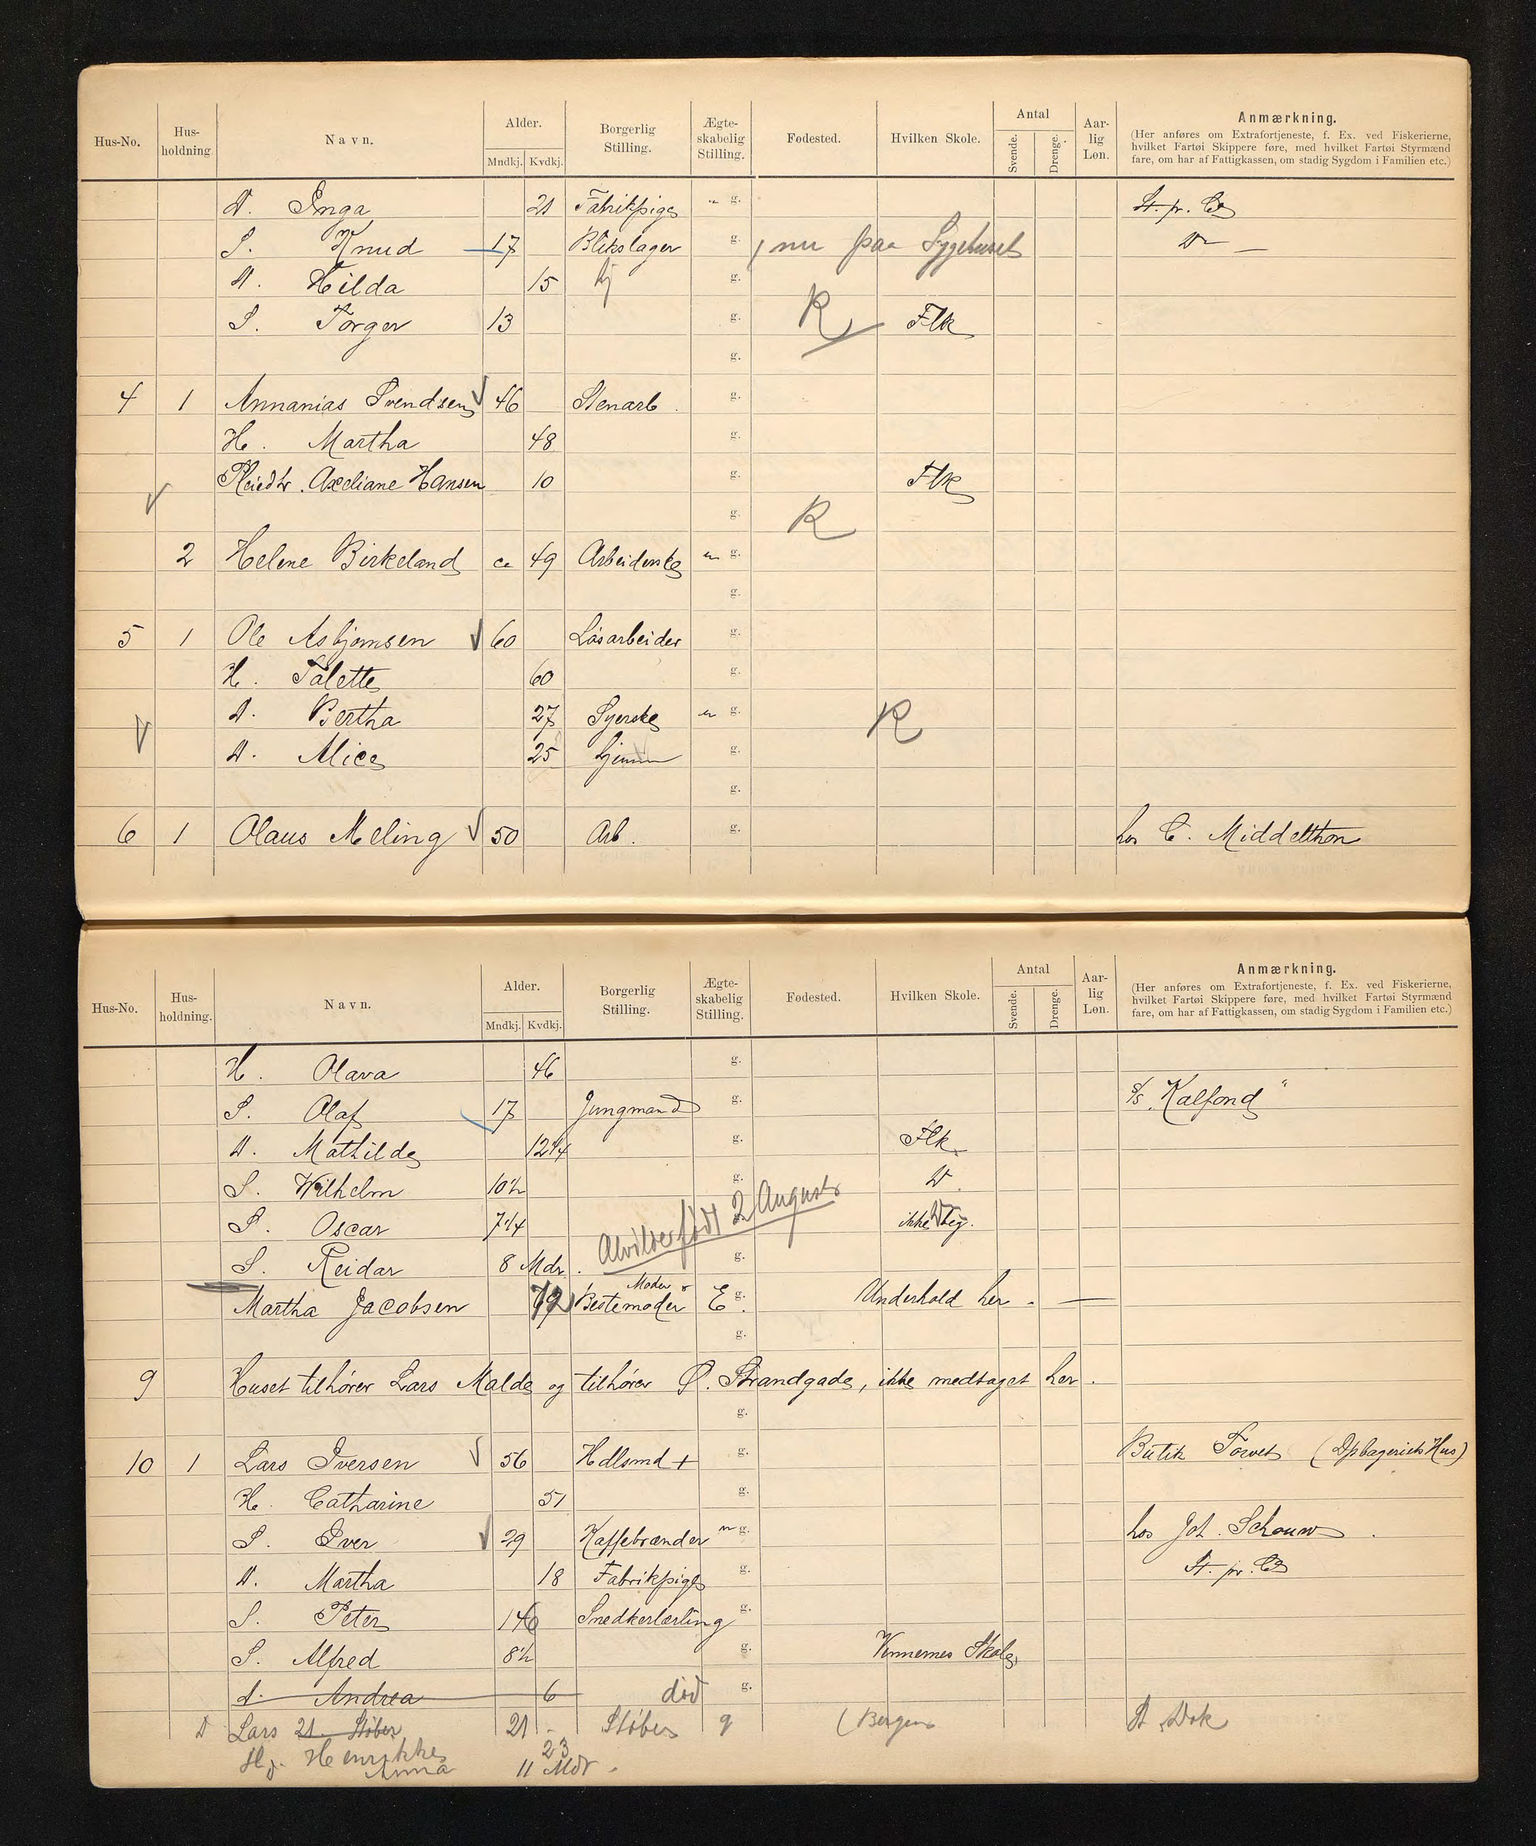 Hus-No. Hus-holdning Navn. Alder. Mndkj. Kvdkj. Borgerlig Stilling. Ægte-skabelig Stilling. Fødested. Hvilken Skole. Antal Svende. Drenge. Aar-lig Løn. Anmærkning.
(Her anføres om Extrafortjeneste, f. Ex. ved Fiskerierne, hvilket Fartøi Skippere føre, med hvilket Fartøi Styrmænd fare, om har af Fattigkassen, om stadig Sygdom i Familien etc.)
D. Inga 21 Fabrikpige " g. St. pr. Co
S. Knud 17 Blikslager g. nu paa Sygehuset Do —
D. Hilda 15 g.
S. Torger 13 g. R Flk
g.
4 1 Annanias Svendsen 46 Stenarb. g.
H. Martha 48 g.
Pleiedtr. Axeliane Hansen 10 g. Flk
g. R
2 Helene Birkeland ca 49 Arbeiderske u g.
g.
5 1 Ole Asbjørnsen 60 Løsarbeider g.
H. Talette 60 g.
D. Bertha 27 Syerske u g. R
D. Alice 25 Hjemme g.
g.
6 1 Olaus Meling 50 Arb. g. hos C. Middelthon
Hus-No. Hus-holdning. Navn. Alder. Mndkj. Kvdkj. Borgerlig Stilling. Ægte-skabelig Stilling. Fødested. Hvilken Skole. Antal Svende. Drenge. Aar-lig Løn. Anmærkning.
(Her anføres om Extrafortjeneste, f. Ex. ved Fiskerierne, hvilket Fartøi Skippere føre, med hvilket Fartøi Styrmænd fare, om har af Fattigkassen, om stadig Sygdom i Familien etc.)
H. Olava 46 g.
S. Olaf 17 Jungmand g. s/s "Kalfond"
D. Mathilde 12 1/4 g. Flk.
S. Wilhelm 10 1/2 g. D.
S. Oscar 7 1/4 g. ikke beg.
S. Reidar 8 Mdr. g.
født 2 August
Martha Jacobsen 72 Bestemoder Moder E. g. Underhold her. —
g.
9 Huset tilhører Lars Malde og tilhører Ø. Strandgade, ikke medtaget her.
g.
10 1 Lars Iversen 56 Hdlsmd + g. Butik Torvet
H. Catharine 51 g.
S. Iver 29 Kaffebrænder u g. hos Joh. Schouw.
D. Martha 18 Fabrikpige g. St. pr. Co
S. Peter 16 Snedkerlærling g.
S. Alfred 8 1/2 g. Vinnernes Skole
d. Andrea 6 død g.
D Lars 21 Støber 21 - Støber g (Bergen St. Dok
H. Henrikke 23
Anna 11 Mdr.